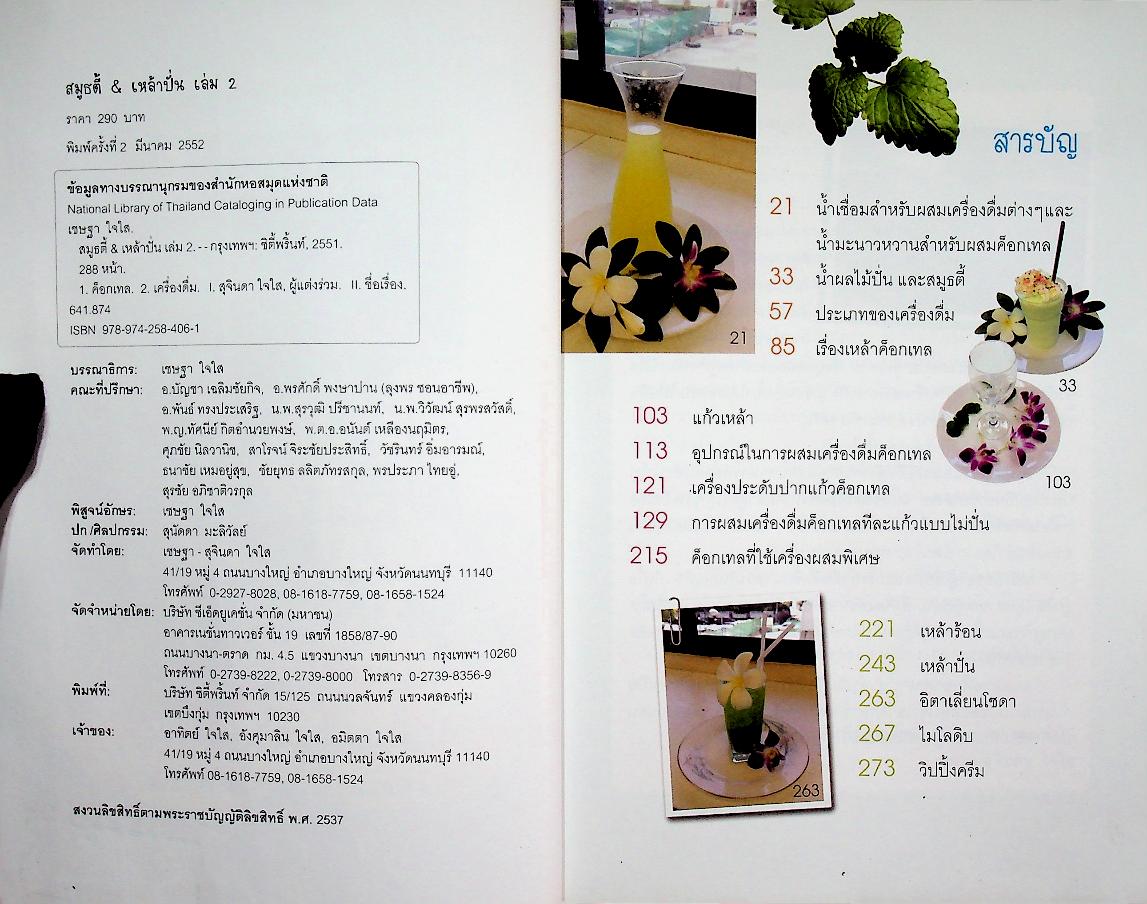 สมูธตี้ & เหล้าปั่น เล่ม 2
ราคา 290 บาท
พิมพ์ครั้งที่ 2 มีนาคม 2552
ข้อมูลทางบรรณานุกรมของสำนักหอสมุดแห่งชาติ
National Library of Thailand Cataloging in Publication Data
เชษฐา ใจใส.
สมูธตี้ & เหล้าปั่น เล่ม 2.-- กรุงเทพฯ: ซิตี้พริ้นท์, 2551.
288 หน้า.
1. ค็อกเทล. 2. เครื่องดื่ม. I. สุจินดา ใจใส, ผู้แต่งร่วม. II. ชื่อเรื่อง.
641.874
ISBN 978-974-258-406-1
บรรณาธิการ: เชษฐา ใจใส
คณะที่ปรึกษา: อ.บัญชา เฉลิมชัยกิจ, อ.พรศักดิ์ พงษาปาน (ลุงพร ซอนอาชีพ),
อ.พันธ์ ทรงประเสริฐ, น.พ.สุรวุฒิ ปรีชานนท์, น.พ.วิวัฒน์ สุรพรสวัสดิ์,
พ.ญ.ทัศนีย์ กิตอำนวยพงษ์, พ.ต.อ.อนันต์ เหลืองนฤมิตร,
ศุภชัย นิลวานิช, สาโรจน์ จิระชัยประสิทธิ์, วัชรินทร์ อิ่มอารมณ์,
ธนาชัย เหมอยู่สุข, ชัยยุทธ ลลิตภัทรสกุล, พรประภา ไทยอู่,
สุรชัย อภิชาติวรกุล
พิสูจน์อักษร: เชษฐา ใจใส
ปก /ศิลปกรรม: สุนัดดา มะลิวัลย์
จัดทำโดย: เชษฐา - สุจินดา ใจใส
41/19 หมู่ 4 ถนนบางใหญ่ อำเภอบางใหญ่ จังหวัดนนทบุรี 11140
โทรศัพท์ 0-2927-8028, 08-1618-7759, 08-1658-1524
จัดจำหน่ายโดย: บริษัท ซีเอ็ดยูเคชั่น จำกัด (มหาชน)
อาคารเนชั่นทาวเวอร์ ชั้น 19 เลขที่ 1858/87-90
ถนนบางนา-ตราด กม. 4.5 แขวงบางนา เขตบางนา กรุงเทพฯ 10260
โทรศัพท์ 0-2739-8222, 0-2739-8000 โทรสาร 0-2739-8356-9
พิมพ์ที่: บริษัท ซิตี้พริ้นท์ จำกัด 15/125 ถนนนวลจันทร์ แขวงคลองกุ่ม
เขตบึงกุ่ม กรุงเทพฯ 10230
เจ้าของ: อาทิตย์ ใจใส, อังคุมาลิน ใจใส, อมิตตา ใจใส
41/19 หมู่ 4 ถนนบางใหญ่ อำเภอบางใหญ่ จังหวัดนนทบุรี 11140
โทรศัพท์ 08-1618-7759, 08-1658-1524
สงวนลิขสิทธิ์ตามพระราชบัญญัติลิขสิทธิ์ พ.ศ. 2537
สารบัญ
21 น้ำเชื่อมสำหรับผสมเครื่องดื่มต่างๆและ
น้ำมะนาวหวานสำหรับผสมค็อกเทล
33 น้ำผลไม้ปั่น และสมูธตี้
57 ประเภทของเครื่องดื่ม
85 เรื่องเหล้าค็อกเทล
21
33
103 แก้วเหล้า
113 อุปกรณ์ในการผสมเครื่องดื่มค็อกเทล
121 เครื่องประดับปากแก้วค็อกเทล
129 การผสมเครื่องดื่มค็อกเทลทีละแก้วแบบไม่ปั่น
215 ค็อกเทลที่ใช้เครื่องผสมพิเศษ
103
221 เหล้าร้อน
243 เหล้าปั่น
263 อิตาเลี่ยนโซดา
267 ไมโลดิบ
273 วิปปิ้งครีม
263